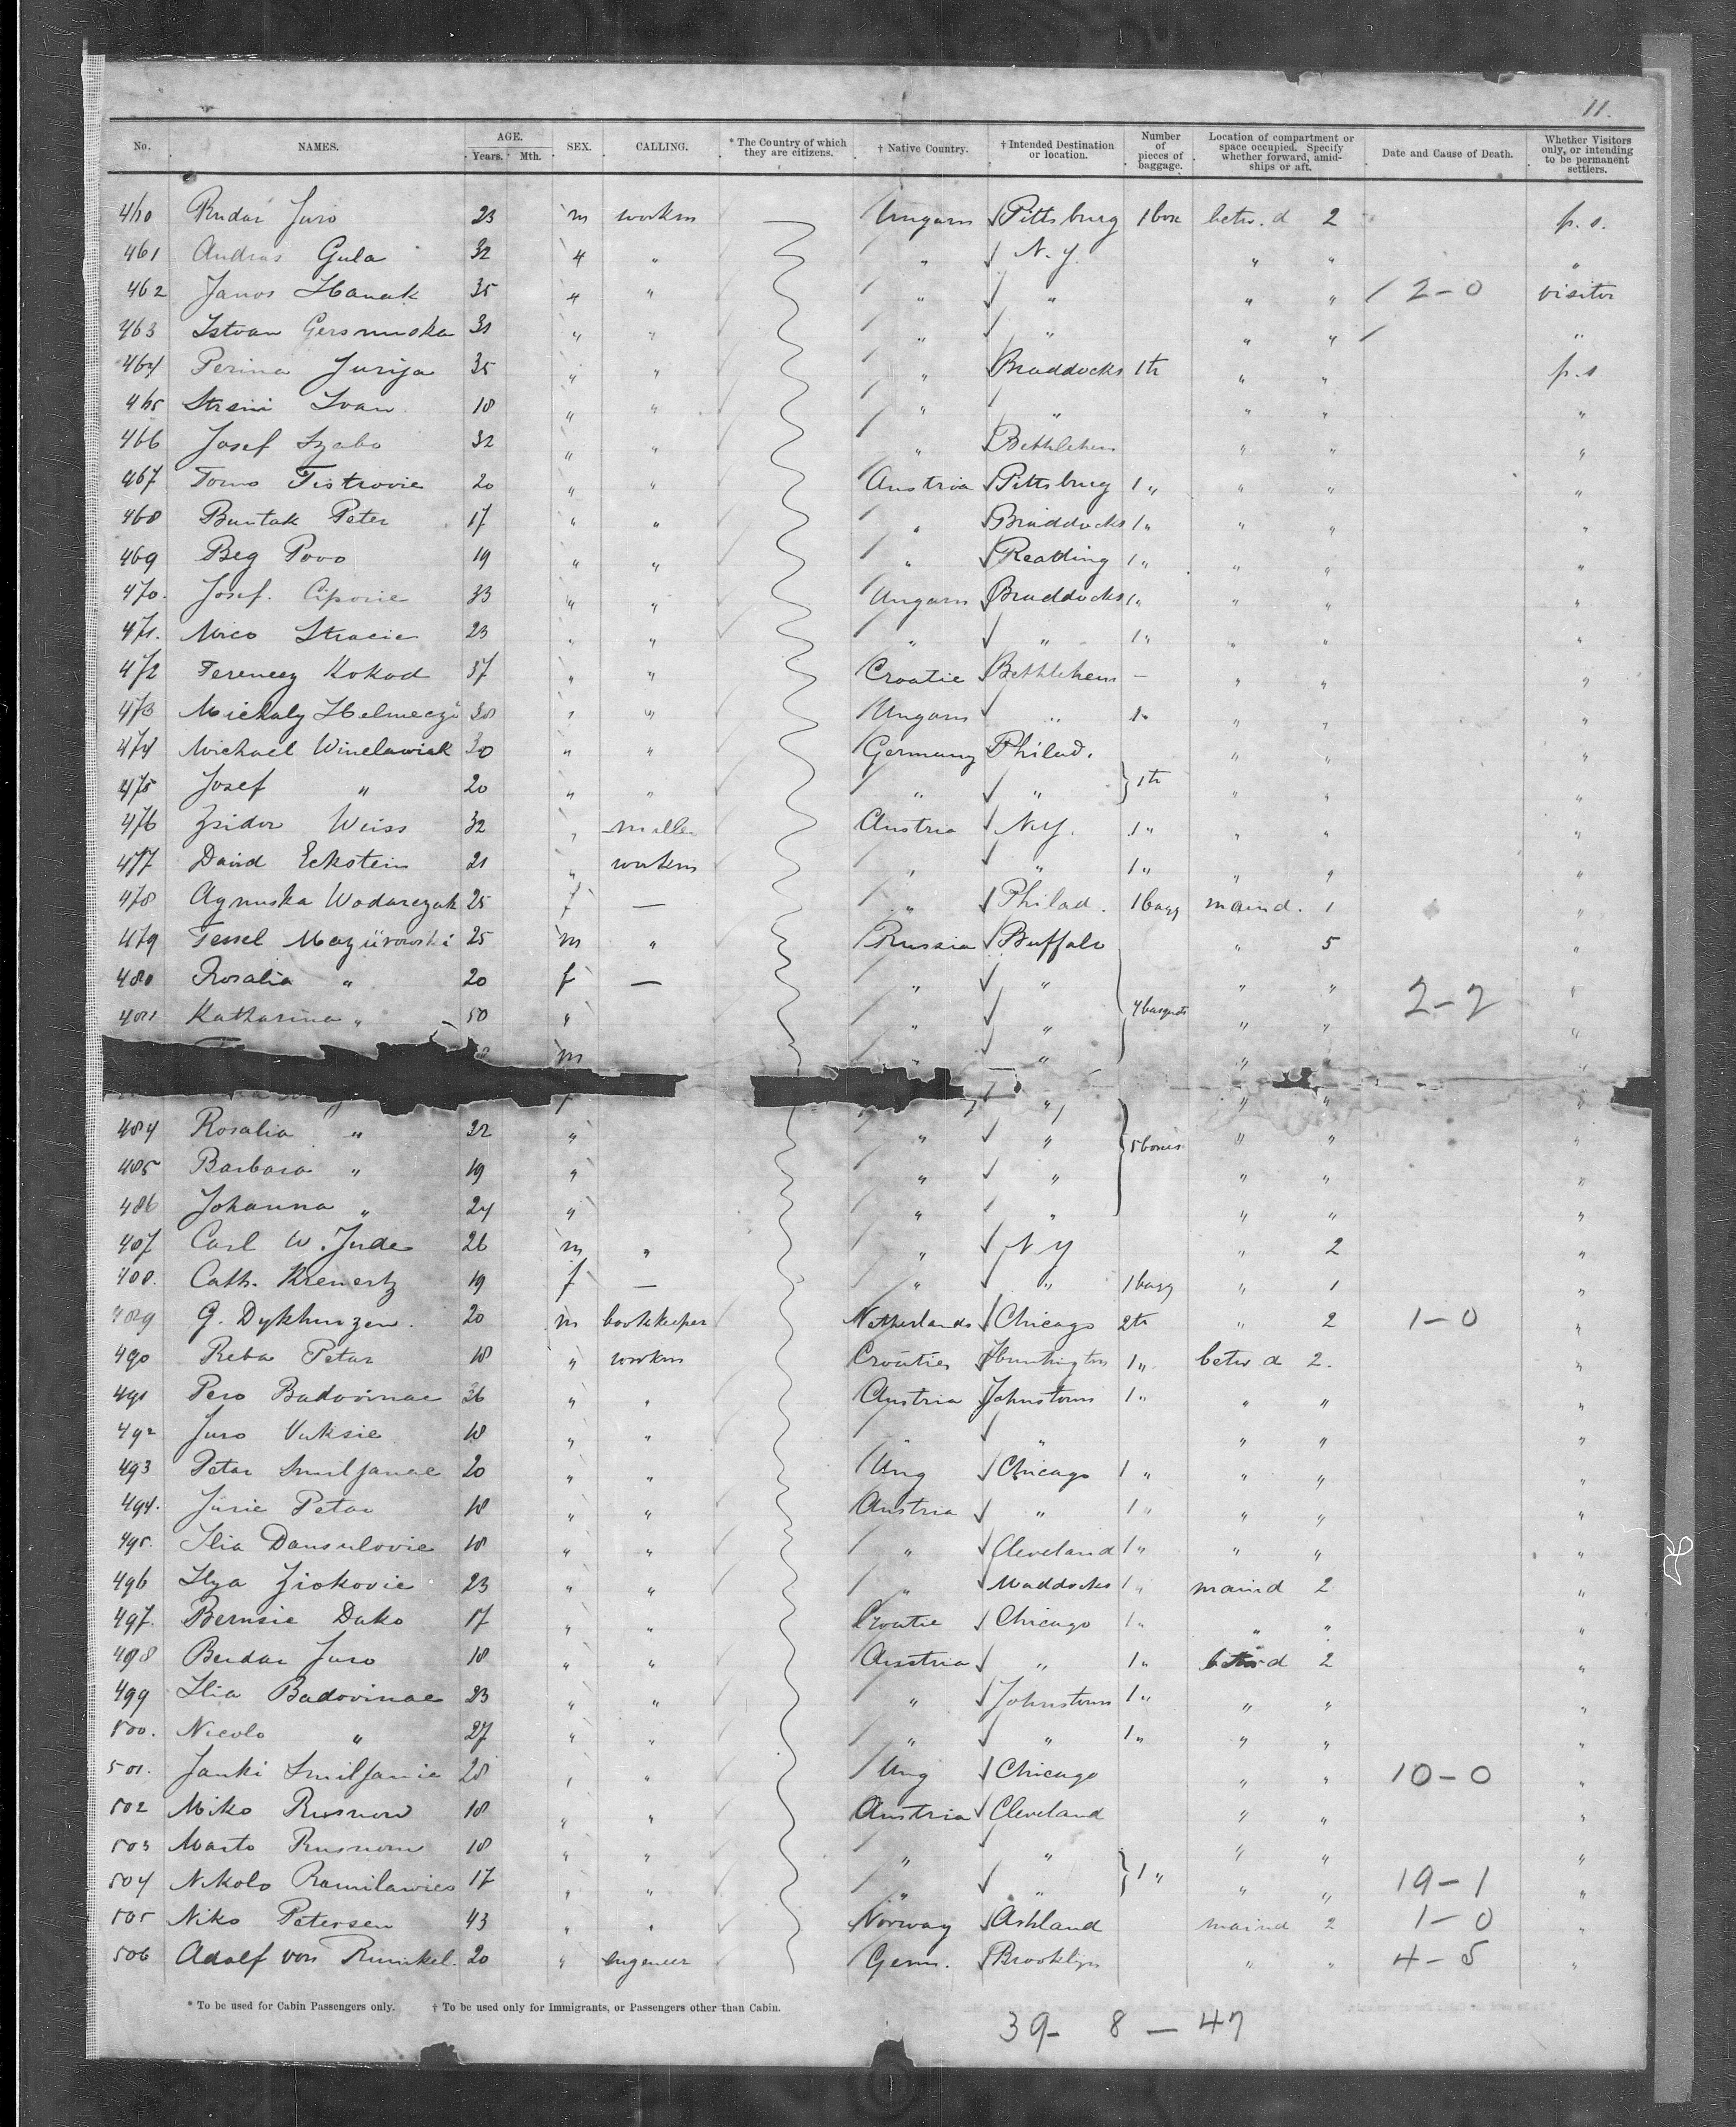 11.
No. NAMES. AGE. Years. Mth. SEX. CALLING. * The Country of which they are citizens. † Native Country. † Intended Destination or location. Number of pieces of baggage. Location of compartment or space occupied. Specify whether forward, amidships or aft. Date and Cause of Death. Whether Visitors only, or intending to be permanent settlers.
460 Rudar Juro 23 m workm — Ungarn Pittsburg 1 box betw. d 2 p. s.
461 Andras Gula 32 " " " N. Y. " " "
462 Janos Hanak 35 " " " " " " 2-0 visitor
463 Istvan 31 " " " " " " "
464 Perina Jurija 35 " " " Braddocks 1 tr " " p. s
465 Ivan 18 " " " " " " "
466 Josef Szabo 32 " " " Bethlehem " " "
467 Tomo Tistrovic 20 " " Austria Pittsburg 1 " " " "
468 Buntak Peter 17 " " " Braddocks 1 " " " "
469 Beg Povo 19 " " " Readding 1 " " " "
470. Josef. Ciporic 33 " " Ungarn Braddocks 1 " " " "
471. Mico Stracic 23 " " " " 1 " " " "
472 Ferencz Kokod 37 " " Croatie Bethlehem — " " "
473 Michaly Helmeczi 30 " " Ungarn " 1 " " " "
474 Michael Winclawick 30 " " Germany Philad. " " "
475 Josef " 20 " " " " 1 tr " " "
476 Isidor Weiss 32 " miller Austria N.Y. 1 " " " "
477 David Eckstein 21 " workm " " 1 " " " "
478 Agnuska Wodarczak 25 f — " Philad. 1 bagg maind. 1 "
479 Tessel Mazürowski 25 m " Russia Buffalo " 5 "
480 Rosalia " 20 f — " " " " 2-2 "
481 Katharina " 50 " " " 4 " " "
m " "
" " "
484 Rosalia " 22 " " " 5 boxes " " "
485 Barbara " 19 " " " " " "
486 Johanna " 24 " " " " " "
487 Carl W. Jude 26 m " " N Y " 2 "
488. Cath. Krenertz 19 f — " " 1 bagg " 1 "
489 G. Dykhuizen. 20 m bookkeeper Netherlands Chicago 2 tr " 2 1-0 "
490 Reba Petar 18 " workm Croatien Huntington 1 " betw d 2. "
491 Pero Badovinac 36 " " Austria Johnstown 1 " " " "
492 Juro Vuksic 18 " " " " " " "
493 Petar Smiljanac 20 " " Ung Chicago 1 " " " "
494. Juric Petar 18 " " Austria " 1 " " " "
495. Ilia Dansulovic 18 " " " Cleveland 1 " " " "
496 Ilya Ziokovic 23 " " " Maddocks 1 " maind 2 "
497. Bernsic Dako 17 " " Croatie Chicago 1 " " " "
498 Berdar Juro 18 " " Austria " 1 " betwd 2 "
499 Ilia Badovinac 23 " " " Johnstown 1 " " " "
500. Nicolo " 27 " " " " 1 " " " "
501. Janki Smiljanic 28 " " Ung Chicago " " 10-0 "
502 Miko Rusnow 18 " " Austria Cleveland " " "
503 Marto Rusnow 18 " " " " " " "
504 Nikolo Ramilawics 17 " " " " 1 " " " 19-1 "
505 Niko Petersen 43 " " Norway Ashland maind 2 1-0 "
506 Adolf von Runkel. 20 " engeneer Germ. Brooklyn " " 4-5 "
* To be used for Cabin Passengers only. † To be used only for Immigrants, or Passengers other than Cabin.
39- 8 - 47